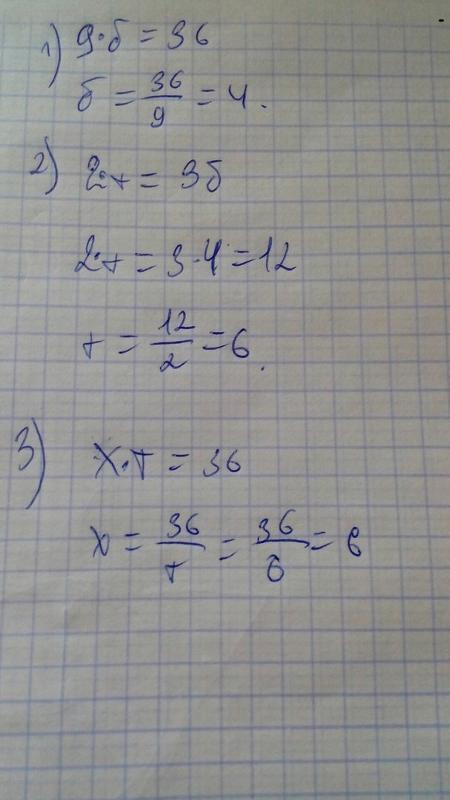 1) 9·б = 36
б = 36/9 = 4.
2) 2·т = 3б
2·т = 3·4 = 12
т = 12/2 = 6.
3) х·т = 36
х = 36/т = 36/6 = 6